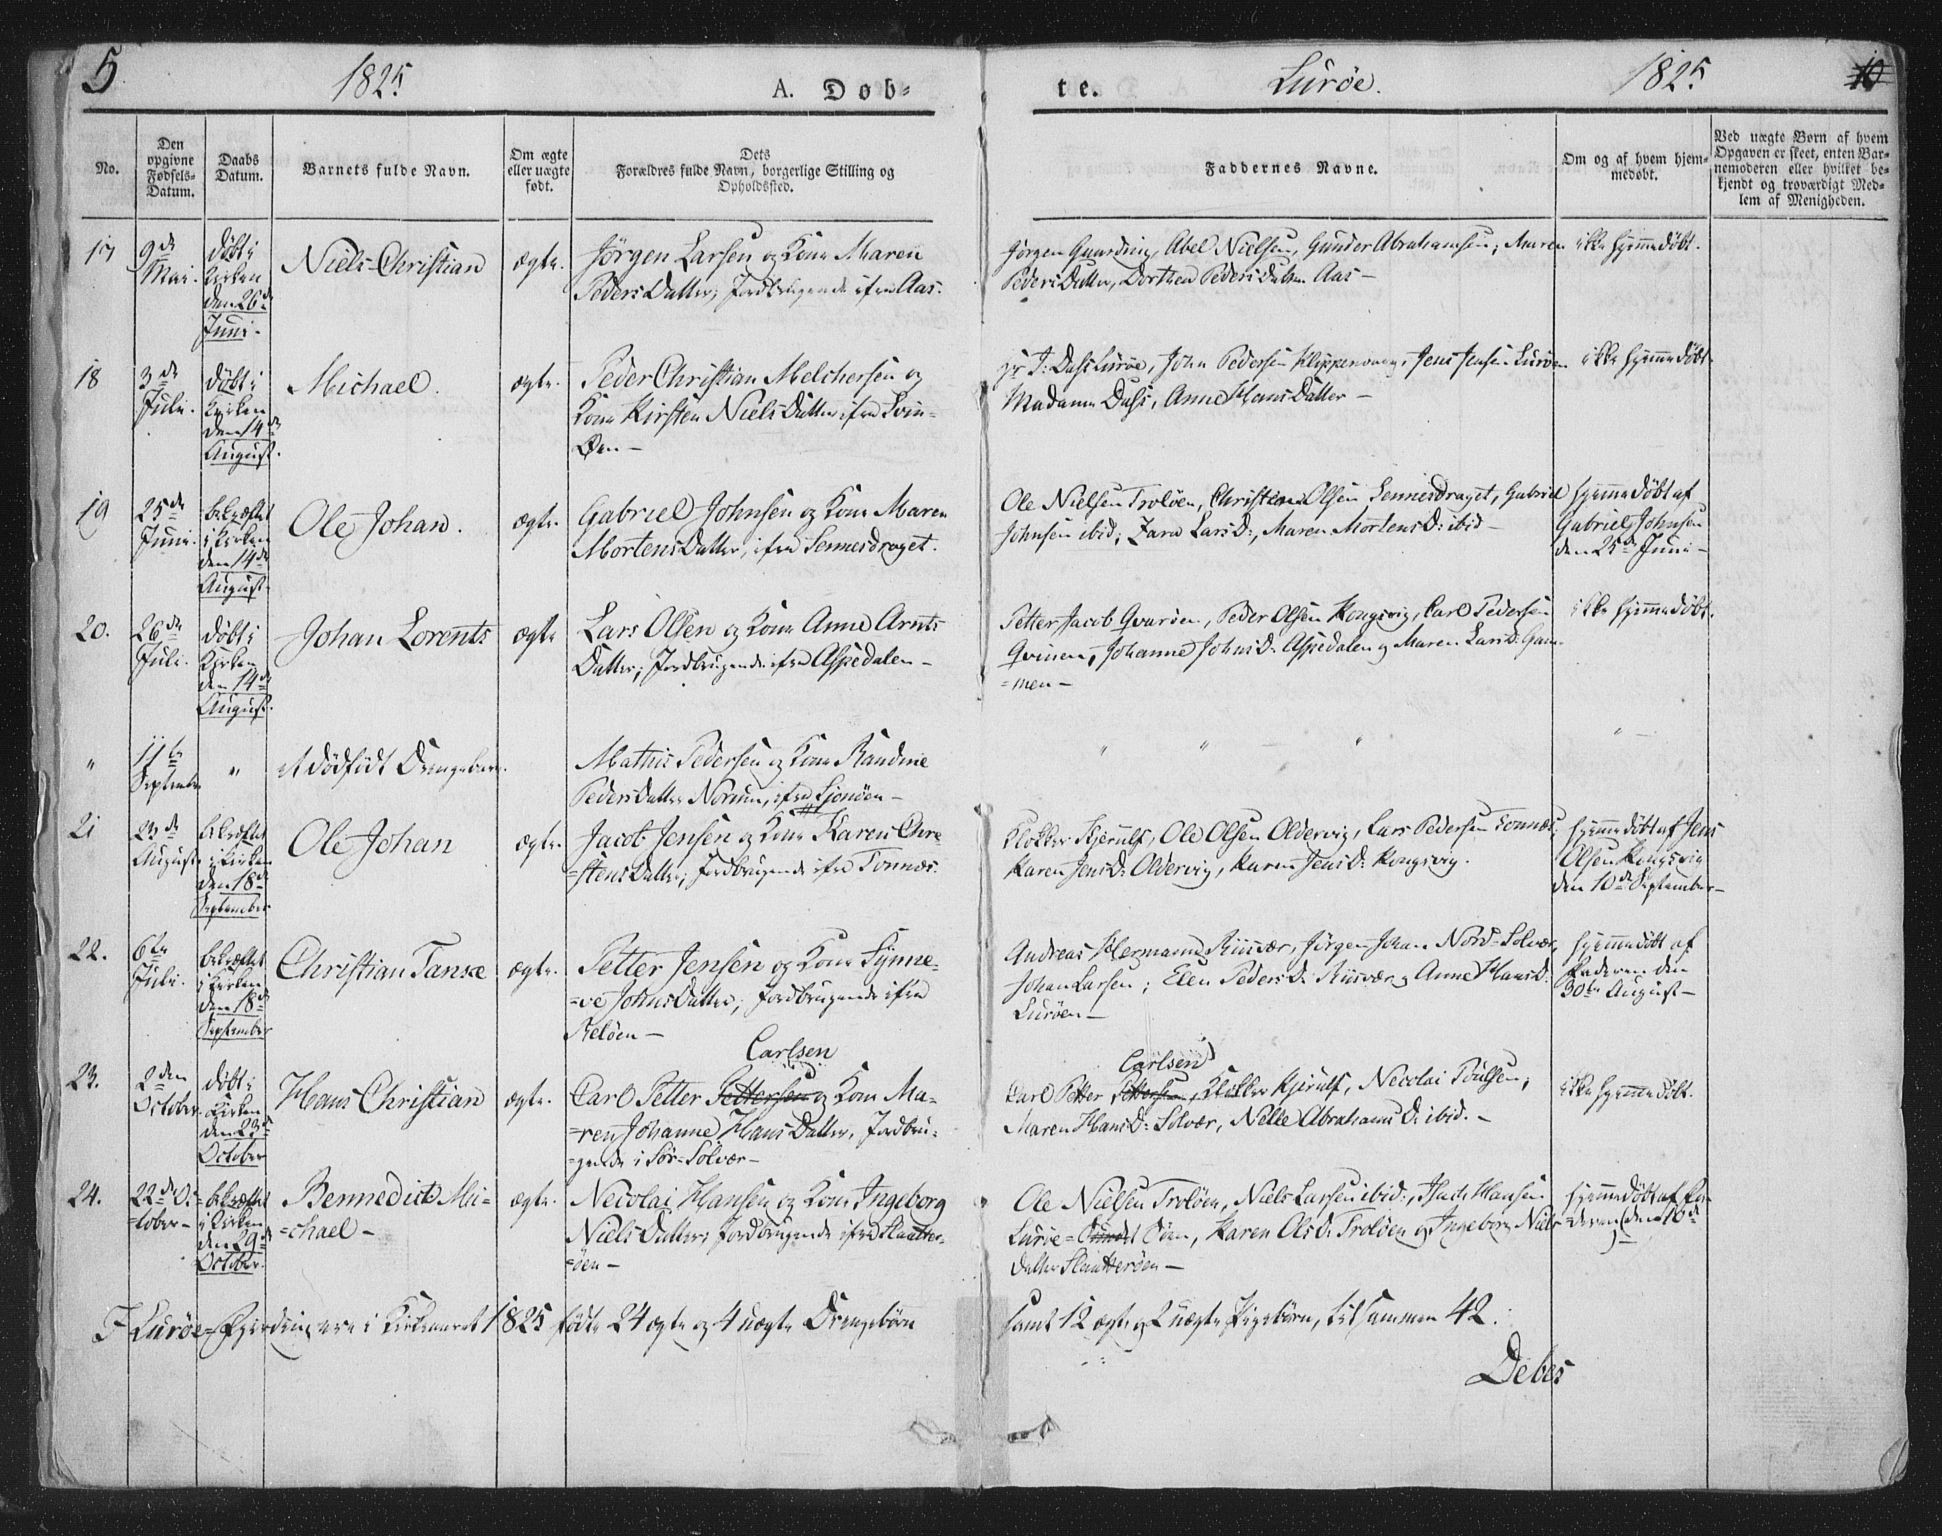 5 1825 A. Døb- te. Lurøe. 1825 10
No.
Den opgivne Fødsels-Datum.
Daabs Datum.
Barnets fulde Navn.
Om ægte eller uægte født.
Dets Forældres fulde Navn, borgerlige Stilling og Opholdssted.
Faddernes Navne.
Om og af hvem hjem-medøbt.
Ved uægte Børn af hvem Opgaven er skeet, enten Bar-nemoderen eller hvilket be-kjendt og troværdigt Med-lem af Menigheden.
17 9de Mai. døbt i Kirken den 26de Juni. Niels Christian ægte.
Jørgen Larsen og Kone Maren
Peders Datter; Jordbrugende i fra Aas.
Jørgen Abel Nielsen, Gunder Abrahamsen; Maren
Peders Datter, Dorthea Peders Datter Aas
ikke hjemmedøbt.
18 3de Juli. døbt i Kirken den 14de August. Michael. ægte.
Peder Christian Melchersen og
Kone Kirsten Niels Datter ifra Svin-
Øen
Hr J: Dass Lurøe, John Pedersen Jens Jensen Lurøen
Madame Dass, Anne Hans Datter
ikke hjemmedøbt
19 25de Juni. bekræftet i Kirken den 14de August. Ole Johan. ægte.
Gabriel Johnsen og Kone Maren
Mortens Datter, ifra Sennesdraget.
Ole Nielsen Troløen, Christian Olsen Sennesdraget, Gabriel
Johnsen ibid; Zara Lars D:, Maren Mortens D: ibid
hjemmedøbt af
Gabriel Johnsen
den 25de Juni
20. 26de Juli. døbt i Kirken den 14de August. Johan Lorents ægte
Lars Olsen og Kone Anne Arnts
Datter; Jordbrugende ifra Aspedalen
Petter Jacob Qvarøen, Peder Olsen Kongsvig, Carl Pedersen
Johanne Johns D: Aspedalen og Maren Lars D:
=men
ikke hjemmedøbt.
" 11te September " et dødfødt Drengebarn.
Mathis Pedersen og Kone Randine
Peders Datter ifra Sjonøen
" " " "
21 23de August bekræftet i Kirken den 18de September Ole Johan ægte.
Jacob Jensen og Kone Karen Chre
=stens Datter; Jordbrugende ifra Tonnes.
Klokker Kjerulf, Ole Olsen Oldervig, Lars Pedersen Tonnes,
Karen Jens D: Oldervig, Karen Jens D: Kongsvig.
hjemmedøbt af Jens
Olsen Kongsvig
den 10de September
22. 6te Juli. bekræftet i Kirken den 18de September Christian Tanse ægte.
Petter Jensen og Kone Synne-
=ve Johns Datter; Jordbrugende ifra
Andreas Hermanns Riisvær, Jørgen Johan Nord-Solvær,
Johan Larsen; Elen Peders D: Riisvær og Anne Hans D:
Lurøen
hjemmedøbt af
Faderen den
30te August
23. 2den October døbt i Kirken den 23de October Hans Christian ægte.
Carlsen
Carl Petter Pettersen og Kone Ma-
=ren Johanne Hans Datter, Jordbru-
=gende i Sør-Solvær
Carlsen
Carl Petter Pettersen, Klokker Kjerulf, Necolai Poulsen;
Maren Hans D: Solvær, Nelle Abrahams D: ibid.
ikke hjemmedøbt.
24. 22de Oc-=tober bekræftet i Kirken den 29de October. Bennedict Mi-=chael ægte.
Necolai Hansen og Kone Ingeborg
Niels Datter; Jordbrugende ifra Slaatter-
=øen
Ole Nielsen Troløen, Niels Larsen ibid:, Hansen
Lurøe= Karen Ols D: Troløen og Ingeborg Niels
datter Slaatterøen
hjemmedøbt af Fa-
=deren den 16de
I Lurøe-Fjerding ere i Kirkeaaret 1825 fødte 24 ægte og 4 uægte Drengebørn samt 12 ægte og 2 uægte Pigebørn, tilsammen 42.
Debes